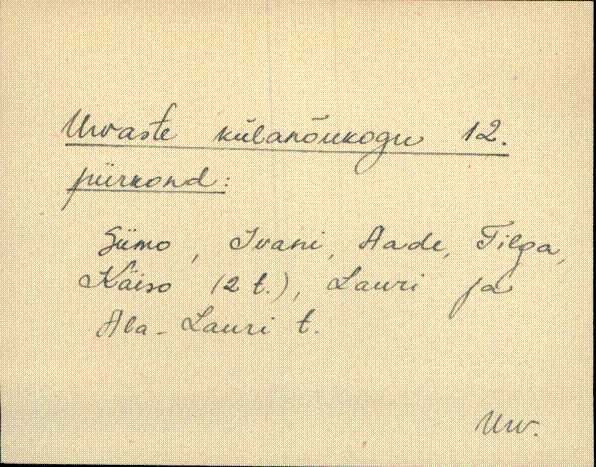 Urvaste külanõukogu 12.
piirkond:
Siimo, Ivani, Aade, Tilga,
Käiso (2 t.), Lauri ja
Ala-Lauri t.
Urv.